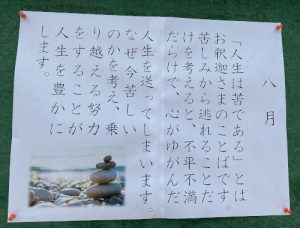 八月
「人生は苦である」とは
お釈迦さまのことばです。
苦しみから逃れることだ
けを考えると、不平不満
だらけで、心がゆがんだ
人生を送ってしまいます。
なぜ今苦しい
のかを考え、乗
り越える努力
をすることが
人生を豊かに
します。